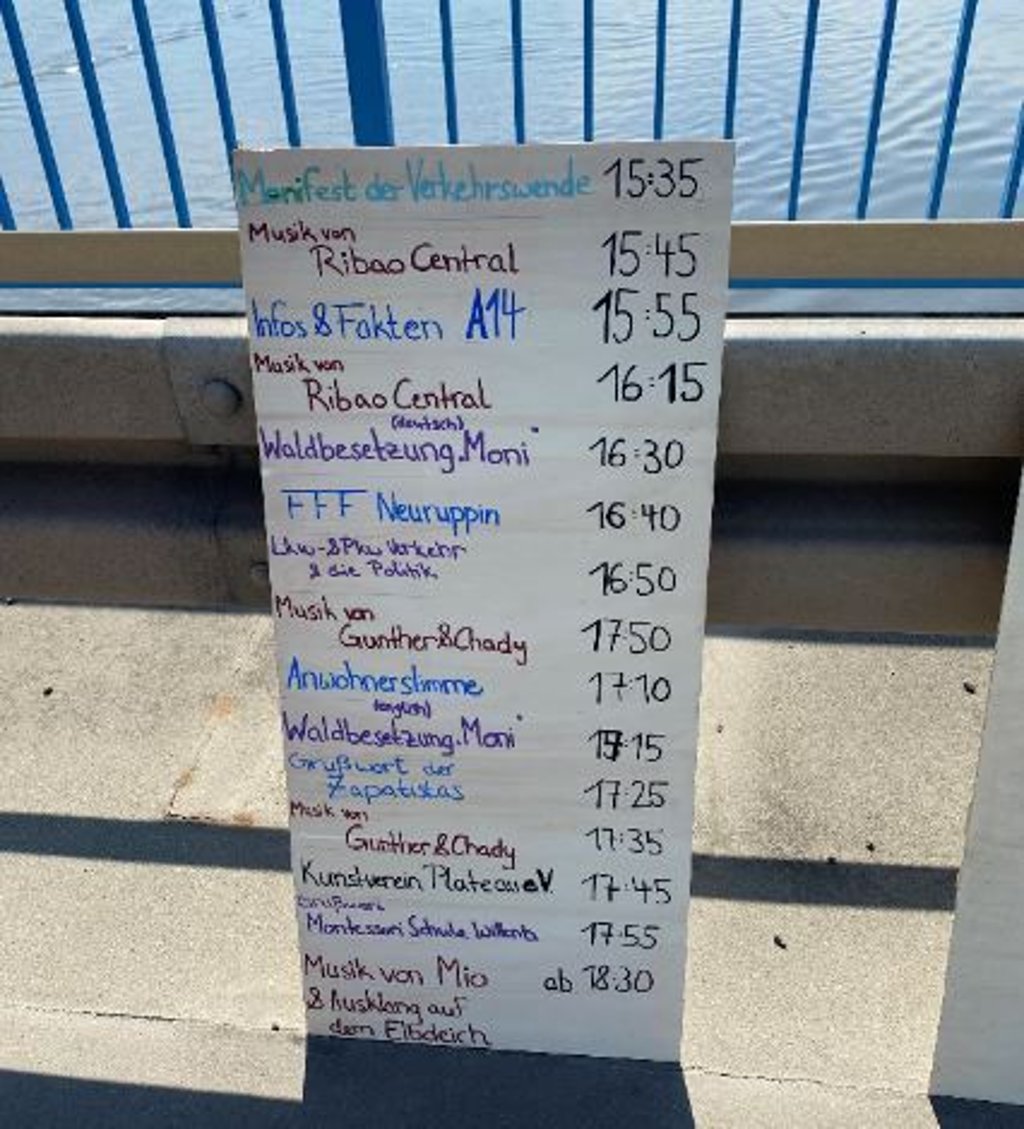 Manifest der Verkehrswende 15:35
Musik von
Ribao Central 15:45
Infos & Fakten A14 15:55
Musik von
Ribao Central 16:15
(deutsch)
Waldbesetzung „Moni" 16:30
FFF Neuruppin 16:40
Lkw- & Pkw Verkehr
& die Politik 16:50
Musik von
Gunther & Chady 17:50
Anwohnerstimme 17:10
(englisch)
Waldbesetzung „Moni" 17:15
Grußwort der
Zapatistas 17:25
Musik von
Gunther & Chady 17:35
Kunstverein Plateau eV. 17:45
Grußwort
Montessori Schule 17:55
Musik von Mio ab 18:30
& Ausklang auf
dem Elbdeich